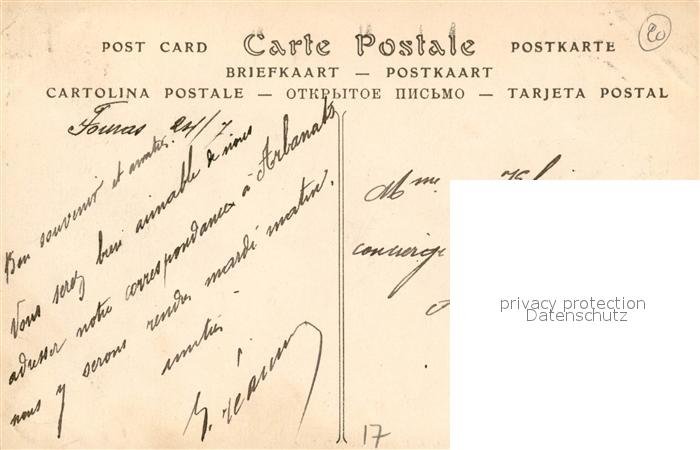 20
POST CARD Carte Postale POSTKARTE
BRIEFKAART — POSTKAART
CARTOLINA POSTALE — ОТКРЫТОЕ ПИСЬМО — TARJETA POSTAL
Fouras 24/7
Bon souvenir et amitiés.
Vous serez bien aimable de nous
adresser notre correspondance à Arbanats
nous y serons rendus mardi matin.
amitiés
Mme
concierge
privacy protection
Datenschutz
17